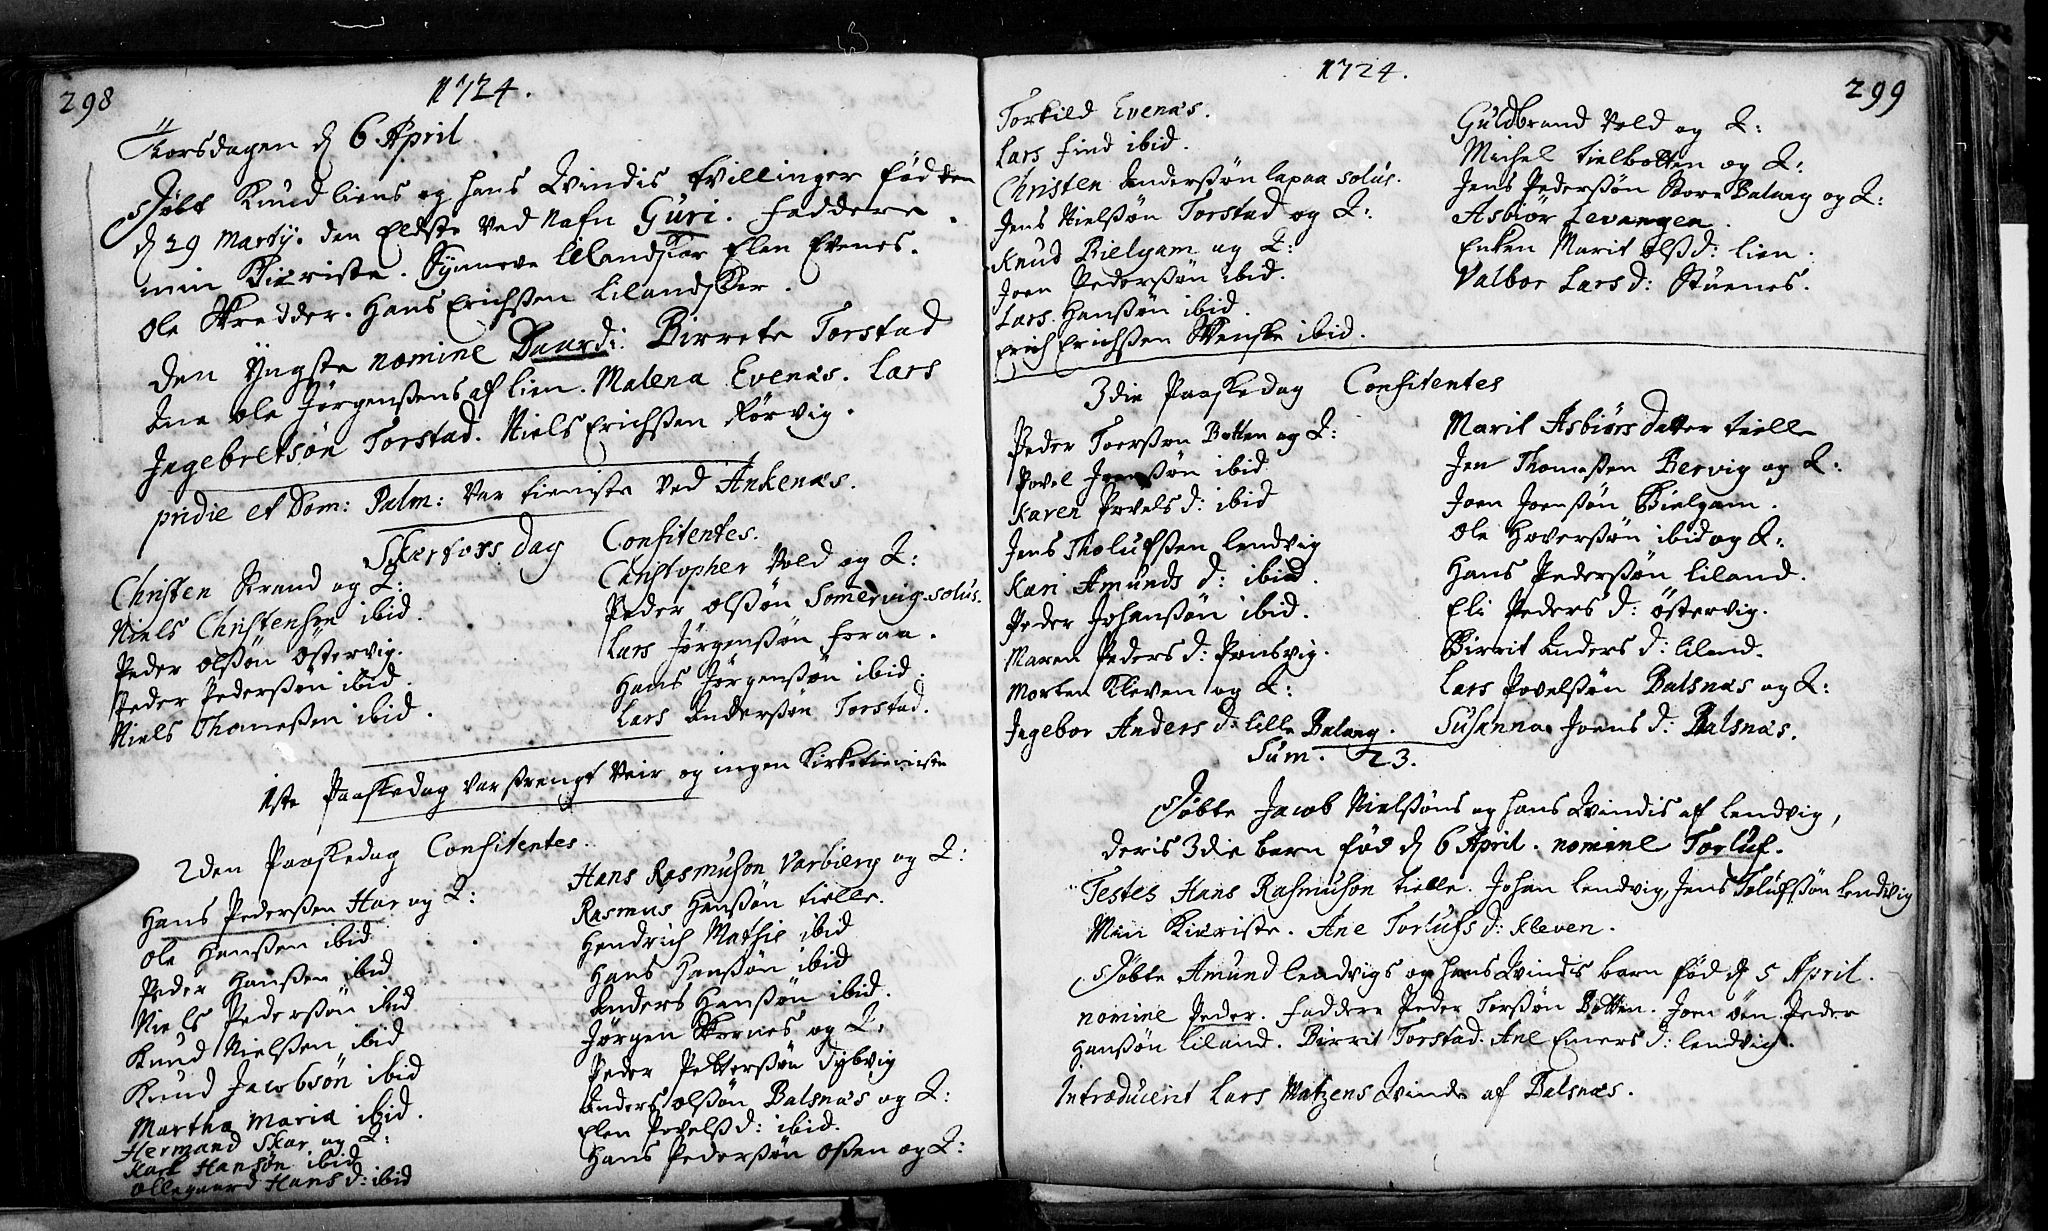 298
1724.
Torsdagen d 6 April
Døbt Knud Liens og hans Qvindis tvillinger fød den
d 29 Marty. den Eldste ved Nafn Guri. Faddere.
min Kiæriste. Synneve Lilandskar Elen Evenes.
Ole Skredder. Hans Erichsen Lilandskar.
den Yngste nomine Baard: Birrete Torstad
Ane Ole Jørgensens af Lien. Malena Evenæs. Lars
Ingebretsøn Torstad. Niels Erichsen Rørvig.
pridie et Dom: Palm: var tieniste ved Ankenæs.
Skærtors dag Confitentes.
Christen Strand og Q:
Niels Christensøn ibid.
Peder Olssøn Østervig.
Peder Pederssøn ibid.
Niels Thomessen ibid.
Christopher Vold og Q:
Peder Olssøn Somervig solus.
Lars Jørgenssøn Foraa.
Hans Jørgenssøn ibid.
Lars Anderssøn Torstad.
1ste Paaskedag var strengt Veir og ingen Kirketieniste
2den Paaskedag Confitentes.
Hans Pederssen Har og Q:
Ole Hanssen ibid
Peder Hanssen ibid
Niels Pederssøn ibid
Knud Nielssen ibid
Knud Jacobsøn ibid
Martha Maria ibid.
Hermand Skar og Q:
Karl Hansøn ibid
Ollegaard Hans d: ibid
Hans Rasmusøn Varbierg og Q:
Rasmus Hanssøn Tielle.
Hendrich Mathie ibid
Hans Hanssøn ibid
Anders Hanssøn ibid.
Jørgen Skornes og Q:
Peder Pettersøn Dybvig
Anders Olssøn Balsnæs og Q:
Elen Povelsd: ibid.
Hans Pederssøn Ossen og Q:
1724.
299
Torkild Evenæs.
Lars Find ibid.
Christen Anderssøn Lapaa solus.
Jens Nielssøn Torstad og Q:
Knud Bielgam og Q:
Joen Pederssøn ibid.
Lars Hanssøn ibid.
Erich Erichssen Svenske ibid.
Guldbrand Vold og Q:
Michel Tielbotten og Q:
Jens Pederssøn Store Balang og Q:
Asbiør Levangen.
Enken Marit Olsd: Lien.
Valbor Lars d: Stuenes.
3die Paaskedag Confitentes
Peder Toerssøn Botten og Q:
Povel Joenssøn ibid
Karen Povels d: ibid
Jens Tholufssen Lendvig
Kari Amunds d: ibid.
Peder Johanssøn ibid.
Maren Peders d: Ponsvig.
Morten Kleven og Q:
Ingebor Anders d: Lille Balang.
Marit Asbiørs datter Tielle
Jen Thomassen Bervig og Q:
Joen Joenssøn Bielgam.
Ole Hoverssøn ibid og Q:
Hans Pederssøn Liland.
Eli Peders d: Østervig.
Birrit Anders d: Liland.
Lars Povelssøn Balsnæs og Q:
Susanna Joens d: Balsnæs.
Sum. 23.
Døbte Jacob Nielssøns og hans Qvindis af Lendvig,
deris 3die barn fød d 6 April. nomine Torluf.
Testes Hans Rasmusøn Tielle. Johan Lendvig, Jens Tolufssøn Lendvig
Min Kiæriste. Ane Torlufs d: Kleven.
Døbte Amund Lendvigs og hans Qvindis barn fød d 5 April.
nomine Peder. Faddere Peder Torssøn Botten. Joen Øen. Peder
Hanssøn Liland. Birrit Torstad. Ane Emers d: Lendvig.
Introducerit Lars Matzens Qvinde af Balsnæs.